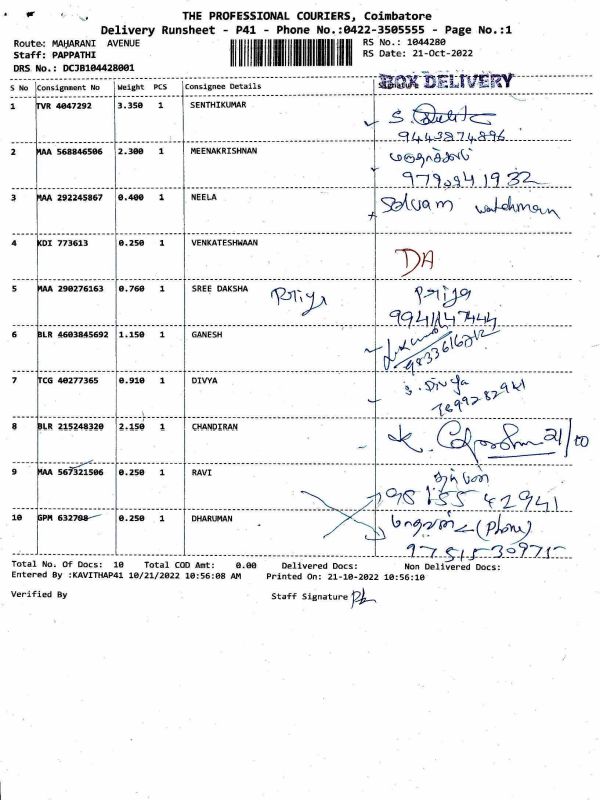 THE PROFESSIONAL COURIERS, Coimbatore
Delivery Runsheet - P41 - Phone No.:0422-3505555 - Page No.:1
Route: MAHARANI AVENUE
RS No.: 1044280
Staff: PAPPATHI
RS Date: 21-Oct-2022
DRS No.: DCJB104428001
BOX DELIVERY
S No Consignment No Weight PCS Consignee Details
1 TVR 4047292 3.350 1 SENTHIKUMAR
9443874896
2 MAA 568846506 2.300 1 MEENAKRISHNAN
3 MAA 292245867 0.400 1 NEELA Selvam watchman
4 KDI 773613 0.250 1 VENKATESHWAAN
DA
5 MAA 290276163 0.760 1 SREE DAKSHA Priya Priya
9941147444
6 BLR 4603845692 1.150 1 GANESH
9833616212
7 TCG 40277365 0.910 1 DIVYA S. Divya
7699282941
8 BLR 215248320 2.150 1 CHANDIRAN K. 21/10
9 MAA 567321506 0.250 1 RAVI
98155 42941
10 GPM 632708 0.250 1 DHARUMAN (Phone)
Total No. Of Docs: 10 Total COD Amt: 0.00 Delivered Docs: Non Delivered Docs:
Entered By :KAVITHAP41 10/21/2022 10:56:08 AM Printed On: 21-10-2022 10:56:10
Verified By Staff Signature